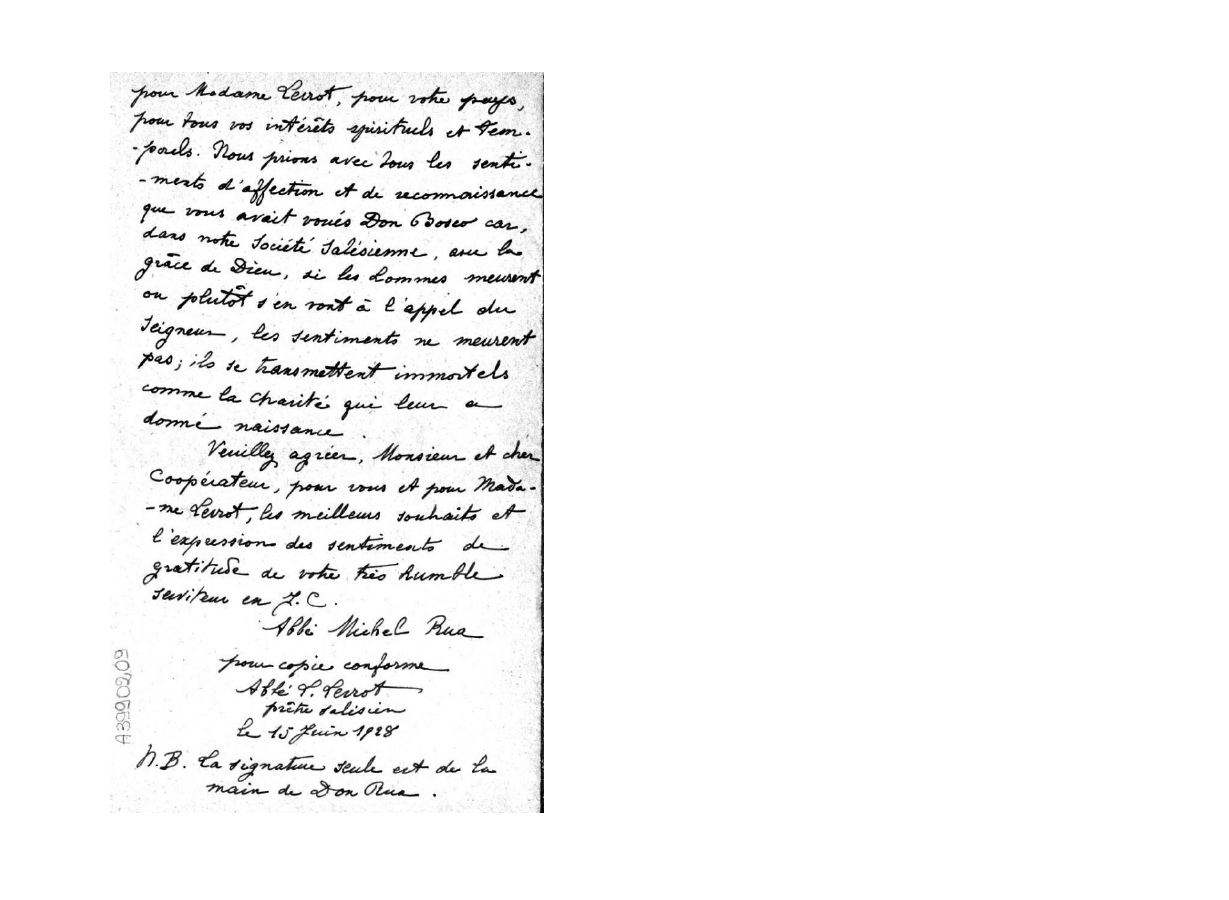 pour Madame Perrot, pour votre pays,
pour tous vos intérêts spirituels et tem-
-porels. Nous prions avec tous les senti-
-ments d'affection et de reconnaissance
que vous avait voués Don Bosco car,
dans notre Société Salésienne, avec la
grâce de Dieu, si les hommes meurent
ou plutôt s'en vont à l'appel du
Seigneur, les sentiments ne meurent
pas; ils se transmettent immortels
comme la charité qui leur a
donné naissance.
Veuillez agréer, Monsieur et cher
Coopérateur, pour vous et pour Mada-
-me Perrot, les meilleurs souhaits et
l'expression des sentiments de
gratitude de votre très humble
serviteur en J.C.
Abbé Michel Rua
pour copie conforme
Abbé P. Perrot
prêtre salésien
le 15 Juin 1928
N.B. La signature seule est de la
main de Don Rua.